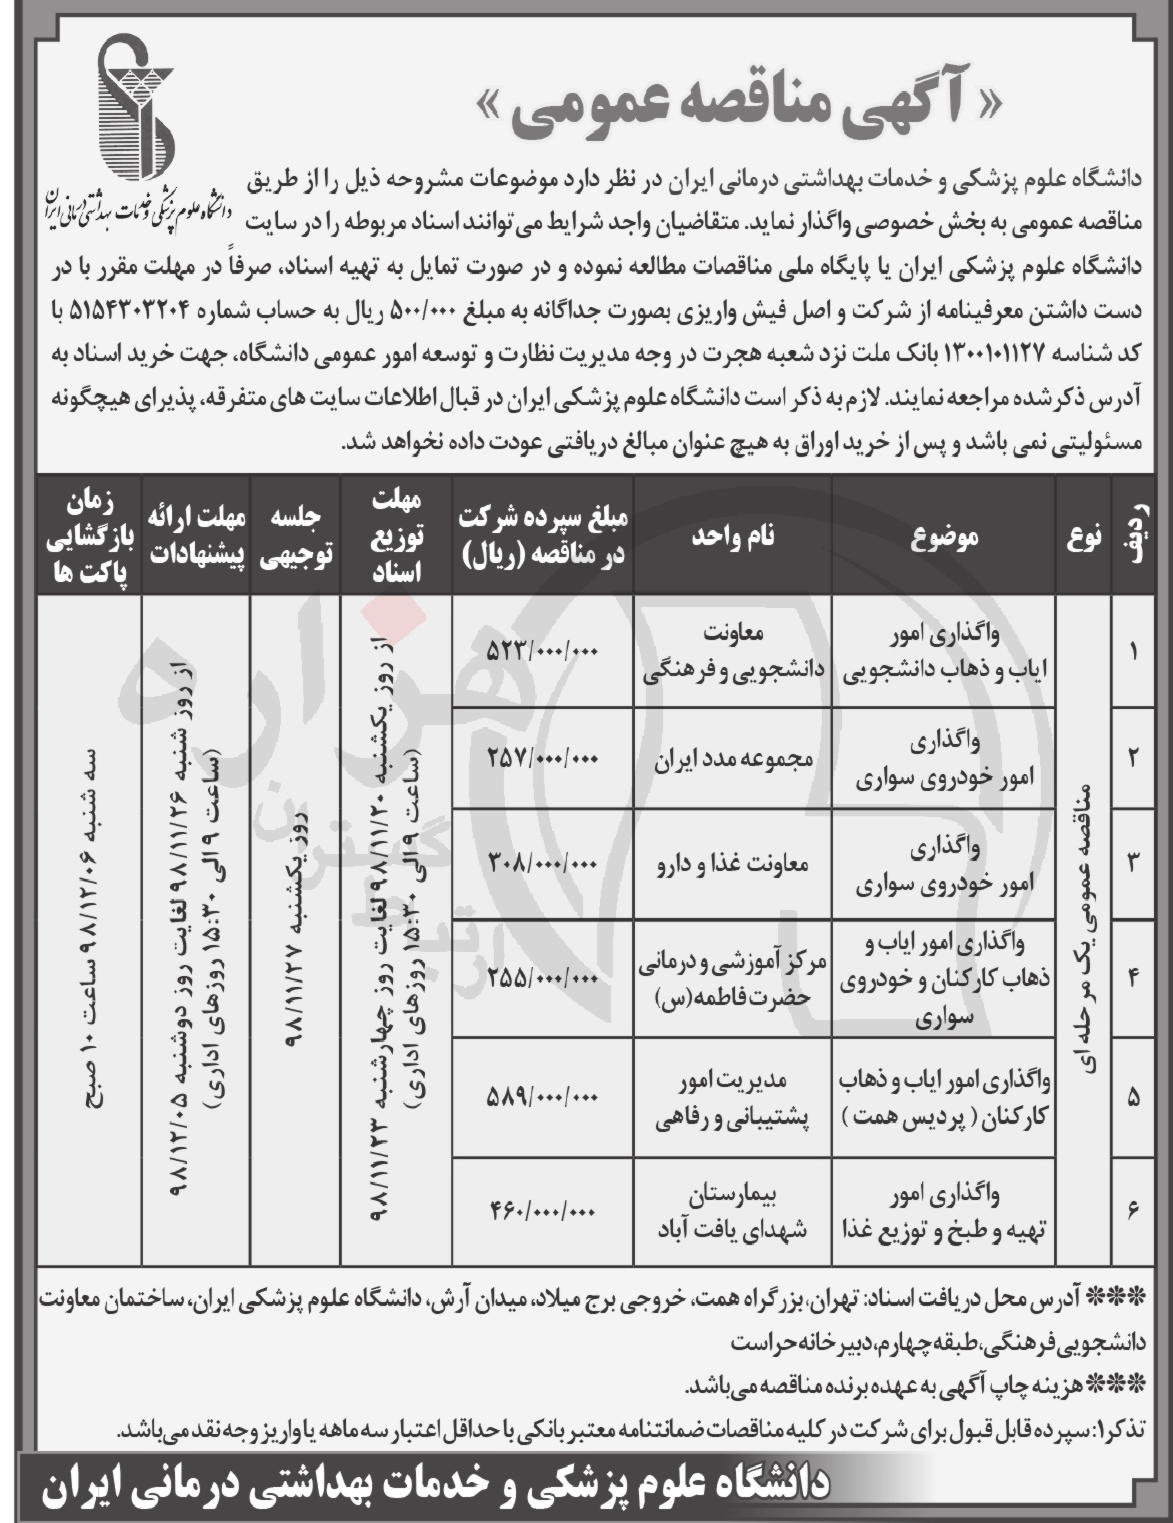 « آگهی مناقصه عمومی »
دانشگاه علوم پزشکی و خدمات بهداشتی درمانی ایران
دانشگاه علوم پزشکی و خدمات بهداشتی درمانی ایران در نظر دارد موضوعات مشروحه ذیل را از طریق
مناقصه عمومی به بخش خصوصی واگذار نماید. متقاضیان واجد شرایط می‌توانند اسناد مربوطه را در سایت
دانشگاه علوم پزشکی ایران یا پایگاه ملی مناقصات مطالعه نموده و در صورت تمایل به تهیه اسناد، صرفاً در مهلت مقرر با در
دست داشتن معرفینامه از شرکت و اصل فیش واریزی بصورت جداگانه به مبلغ ۵۰۰/۰۰۰ ریال به حساب شماره ۵۱۵۴۳۰۳۲۰۴ با
کد شناسه ۱۳۰۰۱۰۱۱۲۷ بانک ملت نزد شعبه هجرت در وجه مدیریت نظارت و توسعه امور عمومی دانشگاه، جهت خرید اسناد به
آدرس ذکرشده مراجعه نمایند. لازم به ذکر است دانشگاه علوم پزشکی ایران در قبال اطلاعات سایت های متفرقه، پذیرای هیچگونه
مسئولیتی نمی باشد و پس از خرید اوراق به هیچ عنوان مبالغ دریافتی عودت داده نخواهد شد.
ردیف
نوع
موضوع
نام واحد
مبلغ سپرده شرکت
در مناقصه (ریال)
مهلت
توزیع
اسناد
جلسه
توجیهی
مهلت ارائه
پیشنهادات
زمان
بازگشایی
پاکت ها
مناقصه عمومی یک مرحله ای
۱
واگذاری امور
ایاب و ذهاب دانشجویی
معاونت
دانشجویی و فرهنگی
۵۲۳/۰۰۰/۰۰۰
۲
واگذاری
امور خودروی سواری
مجموعه مدد ایران
۲۵۷/۰۰۰/۰۰۰
۳
واگذاری
امور خودروی سواری
معاونت غذا و دارو
۳۰۸/۰۰۰/۰۰۰
۴
واگذاری امور ایاب و
ذهاب کارکنان و خودروی
سواری
مرکز آموزشی و درمانی
حضرت فاطمه(س)
۲۵۵/۰۰۰/۰۰۰
۵
واگذاری امور ایاب و ذهاب
کارکنان ( پردیس همت )
مدیریت امور
پشتیبانی و رفاهی
۵۸۹/۰۰۰/۰۰۰
۶
واگذاری امور
تهیه و طبخ و توزیع غذا
بیمارستان
شهدای یافت آباد
۴۶۰/۰۰۰/۰۰۰
از روز یکشنبه ۹۸/۱۱/۲۰ لغایت روز چهارشنبه ۹۸/۱۱/۲۳
(ساعت ۹ الی ۱۵:۳۰ روزهای اداری)
روز یکشنبه ۹۸/۱۱/۲۷
از روز شنبه ۹۸/۱۱/۲۶ لغایت روز دوشنبه ۹۸/۱۲/۰۵
(ساعت ۹ الی ۱۵:۳۰ روزهای اداری)
سه شنبه ۹۸/۱۲/۰۶ ساعت ۱۰ صبح
هزاره
گستران
ارتباط
*** آدرس محل دریافت اسناد: تهران، بزرگراه همت، خروجی برج میلاد، میدان آرش، دانشگاه علوم پزشکی ایران، ساختمان معاونت
دانشجویی فرهنگی، طبقه چهارم، دبیرخانه حراست
*** هزینه چاپ آگهی به عهده برنده مناقصه می‌باشد.
تذکر۱: سپرده قابل قبول برای شرکت در کلیه مناقصات ضمانتنامه معتبر بانکی با حداقل اعتبار سه ماهه یا واریز وجه نقد می‌باشد.
دانشگاه علوم پزشکی و خدمات بهداشتی درمانی ایران